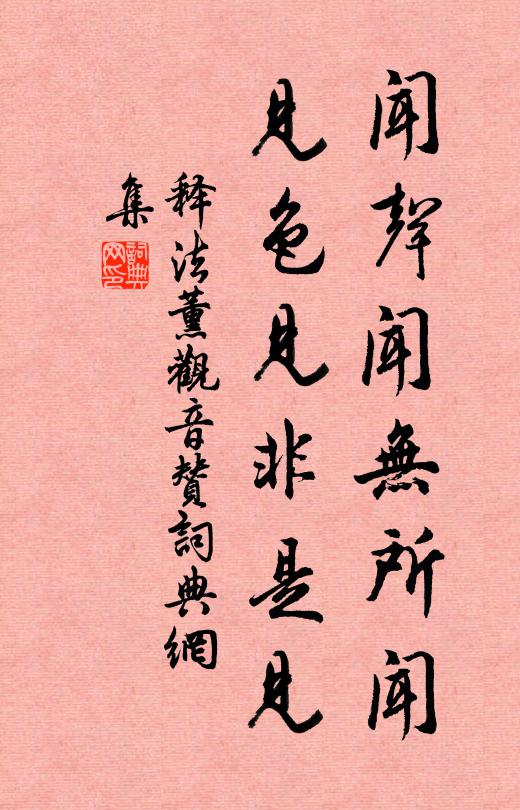 聞聲聞無所聞
見色見非是見
释法薰觀音贊詞典網
集
詞典
网印